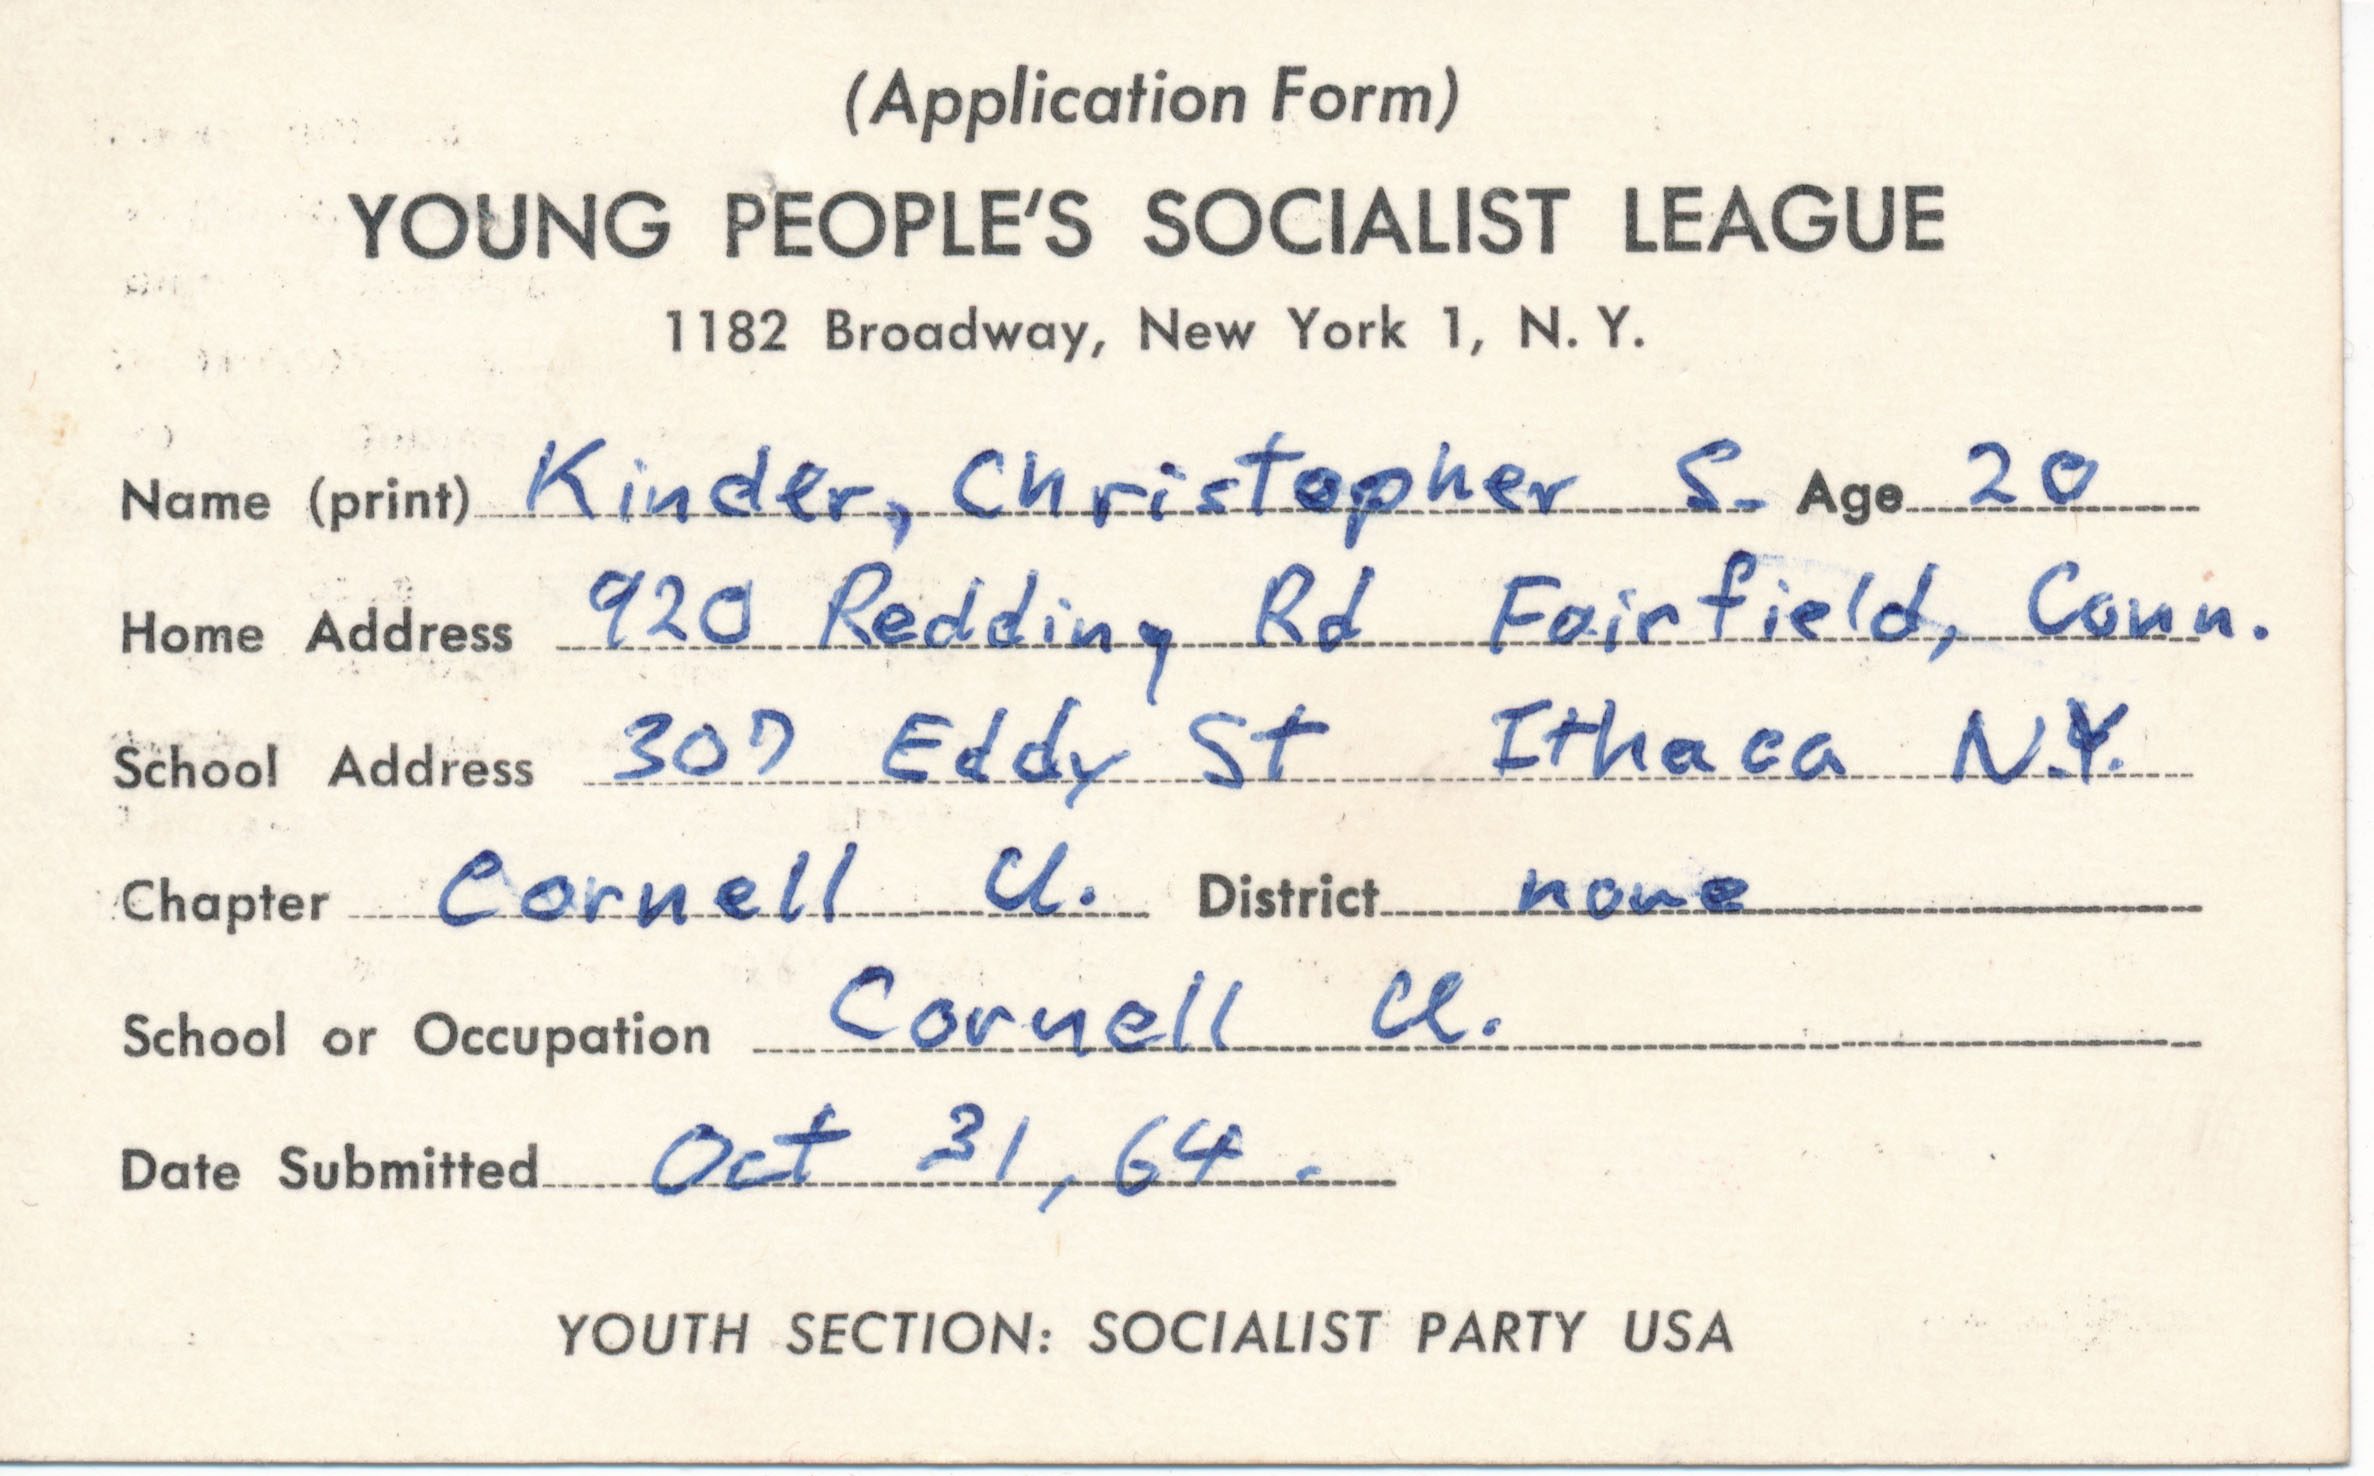 (Application Form)
YOUNG PEOPLE'S SOCIALIST LEAGUE
1182 Broadway, New York 1, N. Y.
Name (print) Kinder, Christopher S. Age 20
Home Address 920 Redding Rd Fairfield, Conn.
School Address 307 Eddy St Ithaca N.Y.
Chapter Cornell U. District none
School or Occupation Cornell U.
Date Submitted Oct 31, 64.
YOUTH SECTION: SOCIALIST PARTY USA